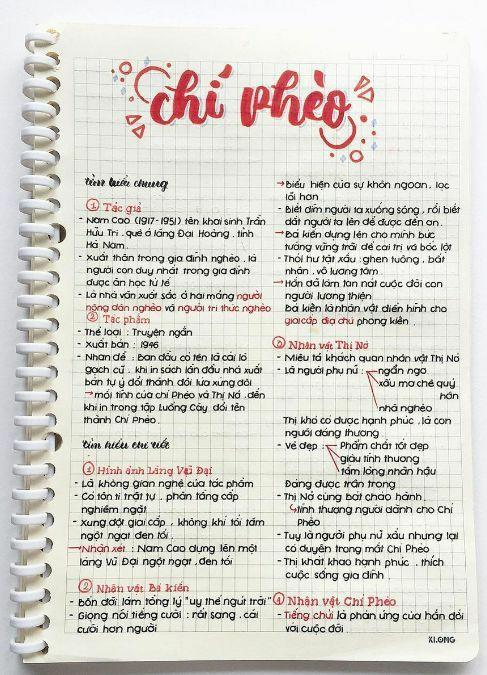 chí phèo
tìm hiểu chung
① Tác giả
- Nam Cao (1917-1951) tên khai sinh Trần
Hữu Tri . quê ở làng Đại Hoàng . tỉnh
Hà Nam .
- Xuất thân trong gia đình nghèo . là
người con duy nhất trong gia đình
được ăn học tử tế
- Là nhà văn xuất sắc ở hai mảng người
nông dân nghèo và người trí thức nghèo
② Tác phẩm
- Thể loại : Truyện ngắn
- Xuất bản : 1946
- Nhan đề : Ban đầu có tên là cái lò
gạch cũ . khi in sách lần đầu nhà xuất
bản tự ý đổi thành đôi lứa xứng đôi
→ mối tình của chí Phèo và Thị Nở . đến
khi in trong tập Luống Cày . đổi tên
thành Chí Phèo .
tìm hiểu chi tiết
① Hình ảnh Làng Vũ Đại
- Là không gian nghệ của tác phẩm
- Có tôn ti trật tự . phân tầng cấp
nghiêm ngặt
- Xung đột giai cấp , không khí tối tăm
ngột ngạt đen tối .
→ Nhận xét : Nam Cao dựng lên một
làng Vũ Đại ngột ngạt , đen tối
② Nhân vật Bá kiến
- Bốn đời làm tổng lý "uy thế ngút trời"
- Giọng nói tiếng cười : rất sang . cái
cười hơn người
→ Biểu hiện của sự khôn ngoan , lọc
lõi hơn
- Biết dìm người ta xuống sông , rồi biết
dắt người ta lên để được đền ơn .
→ Bá kiến dựng lên cho mình bức
tường vững trãi để cai trị và bóc lột
- Thói hư tật xấu : ghen tuông , bất
nhân . vô lương tâm .
→ Hắn đã làm tan nát cuộc đời con
người lương thiện
Bá kiến là nhân vật điển hình cho
giai cấp địa chủ phong kiến .
③ Nhân vật Thị Nở
- Miêu tả khách quan nhân vật Thị Nở
- Là người phụ nữ : ngẩn ngơ
xấu ma chê quỷ
hờn
nhà nghèo
Thị khó có được hạnh phúc , là con
người đáng thương
- Vẻ đẹp : Phẩm chất tốt đẹp
giàu tình thương
tấm lòng nhân hậu
Đáng được trân trọng
- Thị Nở cùng bát cháo hành .
tình thương người dành cho Chí
Phèo
- Tuy là người phụ nữ xấu nhưng lại
có duyên trong mắt Chí Phèo
- Thị khát khao hạnh phúc . thích
cuộc sống gia đình .
④ Nhân vật Chí Phèo
- Tiếng chửi là phản ứng của hắn đối
với cuộc đời .
KLONG